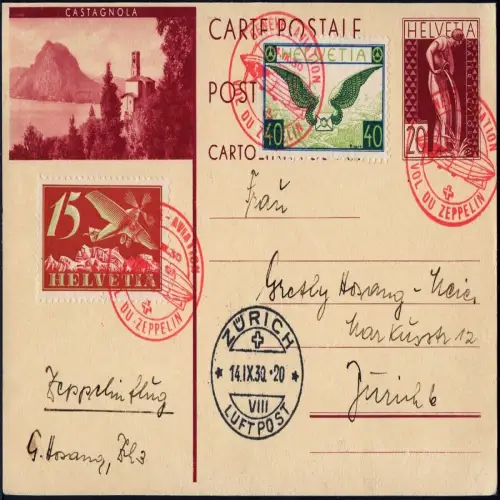 CASTAGNOLA
CARTE POSTALE
POST
CARTO
HELVETIA
40 40
HELVETIA
20
VOL DU ZEPPELIN
15
HELVETIA
AVIATION
DU ZEPPELIN
Frau
Gretly Hosang-Meier
Markusstr 12
Zürich 6
ZÜRICH
14.IX.30.-20
VIII
LUFTPOST
Zeppelinflug
G. Hosang,